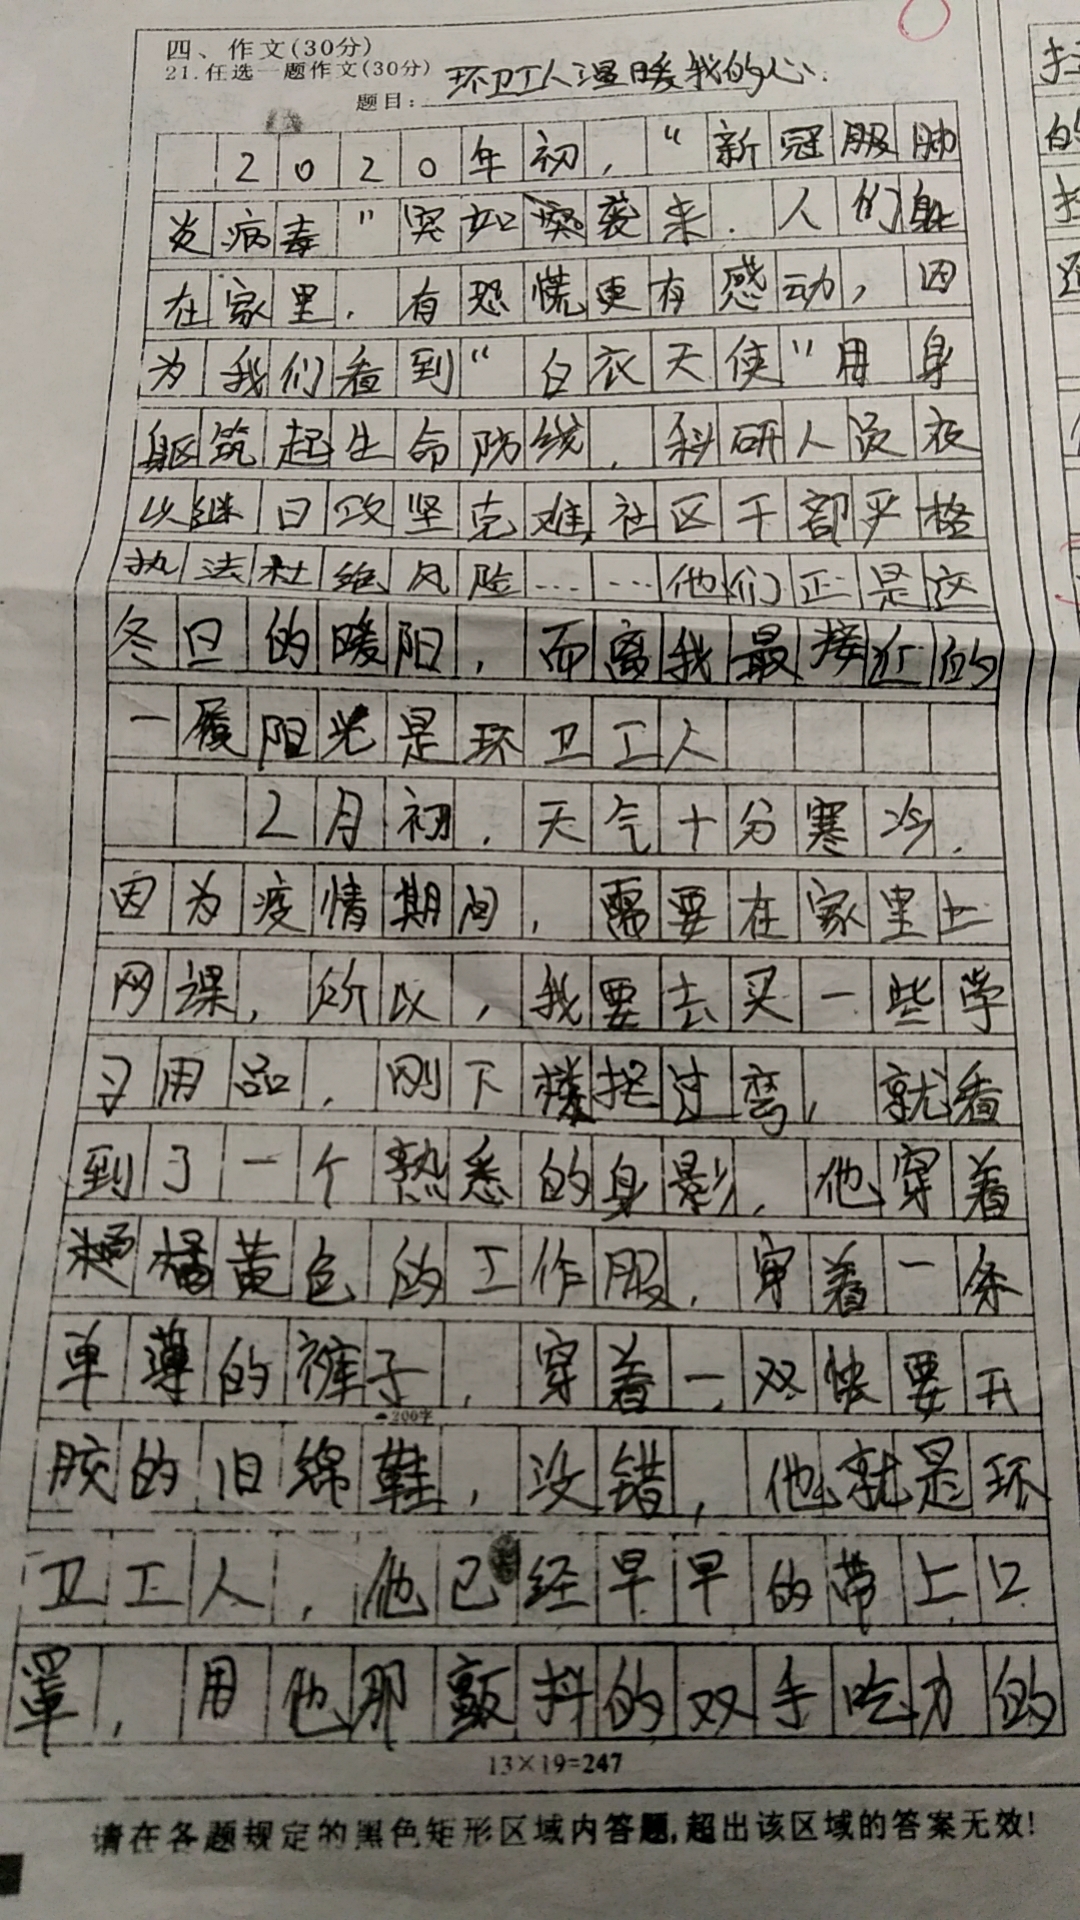 四、作文(30分)
21.任选一题作文(30分)
题目: 环卫工人温暖我的心
2020年初，“新冠服肺
炎病毒”突如突袭来.人们躲
在家里.有恐慌更有感动，因
为我们看到“白衣天使”用身
躯筑起生命防线，科研人员夜
以继日攻坚克难,社区干部严格
执法杜绝风险……他们正是这
冬日的暖阳，而离我最接近的
一履阳光是环卫工人
2月初，天气十分寒冷.
因为疫情期间，需要在家里上
网课，所以，我要去买一些学
习用品，刚下楼拐过弯，就看
到了一个熟悉的身影，他穿着
橘黄色的工作服，穿着一条
单薄的裤子，穿着一双快要开
胶的旧绵鞋，没错，他就是环
卫工人，他已经早早的带上口
罩，用他那颤抖的双手吃力的
200字
13×19=247
请在各题规定的黑色矩形区域内答题,超出该区域的答案无效!